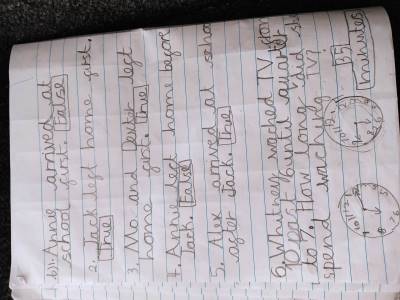 Annie arrived at
school first. False
2. Jack left home first.
True
3. Mo and Dexter left
home first. True
4. Annie left home before
Jack. False
5. Alex arrived at school
after Jack. True
6. Whitney wached TV from
10 past 6 until quarter
to 7. How long did she
spend waching TV?
35
minutes